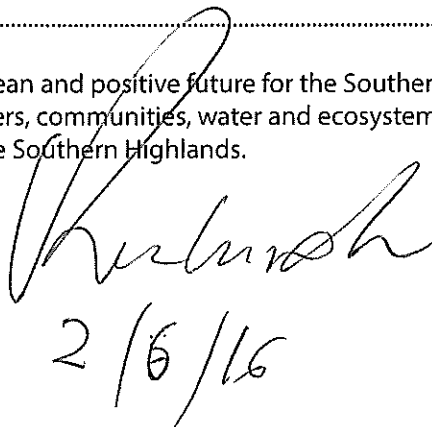 ean and positive future for the Souther
ers, communities, water and ecosystem
e Southern Highlands.
2/6/16